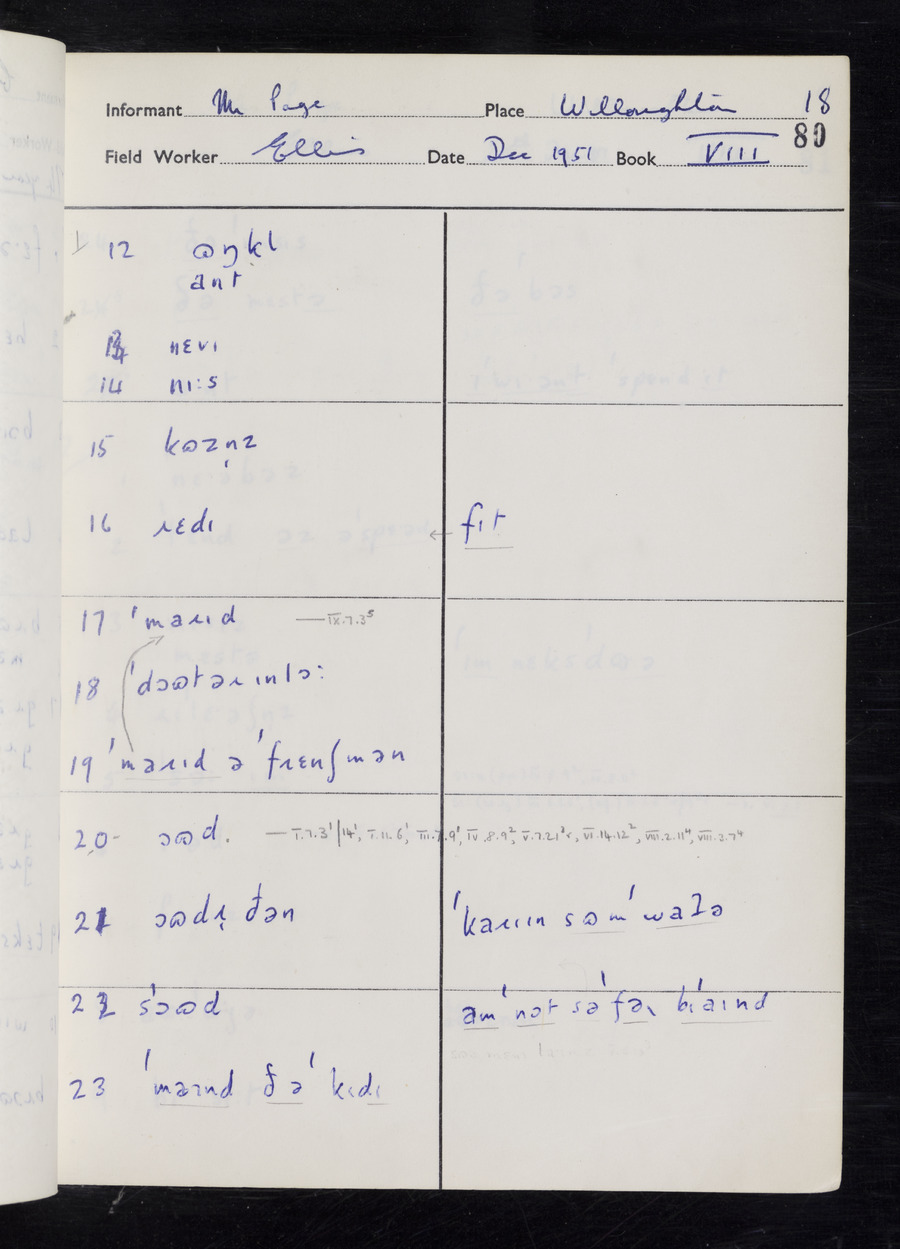 Informant Mr Page Place Willoughton 18
80
Field Worker Ellis Date Dec 1951 Book VIII
12 ɷŋkl
ant
13 nɛvɪ
14 ni:s
15 kɷzn̩z
16 ɹɛdɪ ← fɪt
17 ˈmaɹɪd — IX.7.3⁵
18 ˈdɔɷtəɹ ɪn lɔ:
19 ˈmaɹɪd ə ˈfɹɛnʃmən
20 ɔɷd. — I.7.3¹/14¹, I.11.6¹, III.7.9¹, IV.8.9², V.7.21², VI.14.12², VIII.2.11⁴, VIII.3.7⁴
21 ɔɷdɪ̨ ðən ˈkaɹɪɪn sɷmˈwaʔə
22 sˈɔɷd amˈnɔt səˈfəɹ bɪˈaɪnd
23 ˈmaɪnd ðəˈkɪdɪ